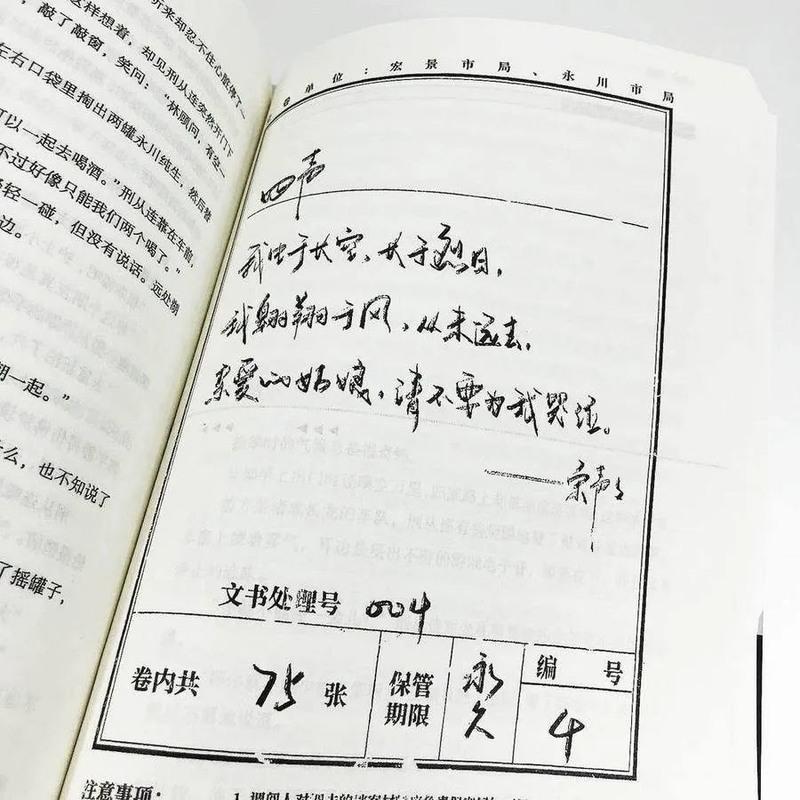 来却忍不住心脏停了一
这样想着，却见刑从连突然开门下
，敲了敲窗，笑问：“林顾问，有空一
左右口袋里掏出两罐永川纯生，然后替
可以一起去喝酒。”刑从连靠在车前，
不过好像只能我们两个喝了。”
轻一碰，但没有说话。远处朝
边。
一起。”
什么，也不知说了
了摇罐子，
卷单位：宏景市局、永川市局
四声
我生于长空、长于烈日，
我翱翔于风、从未远去，
亲爱的姑娘，请不要为我哭泣。
——宋声声
文书处理号 004
卷内共 75 张
保管期限
永久
编号
4
注意事项：